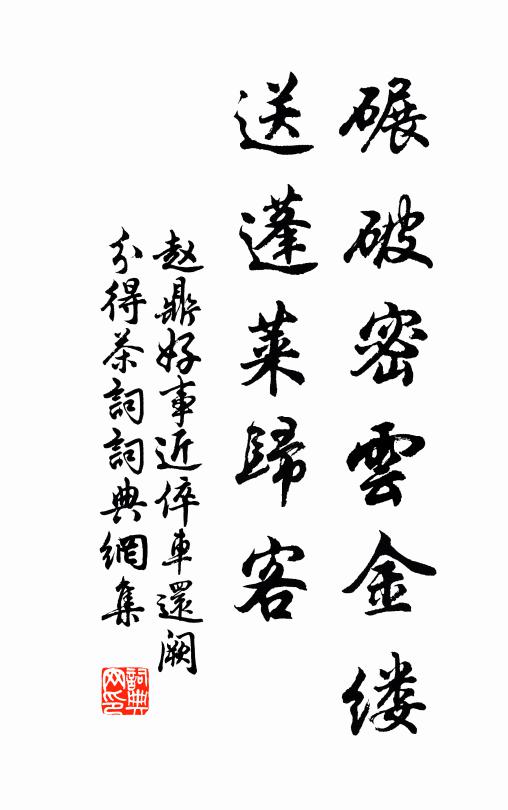 碾破密雲金缕
送蓬莱歸客
赵鼎好事近倅車還阙
分得茶詞詞典網集
詞典
网印